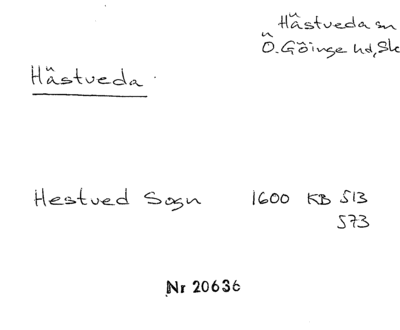 Hästveda sn
Ö. Göinge hd, Sk
Hästveda
Hestved Sogn 1600 KB 513
573
Nr 20636